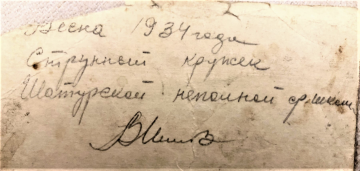 Весна 1934 года
Струнный кружек
Шатурской неполной ср. школы